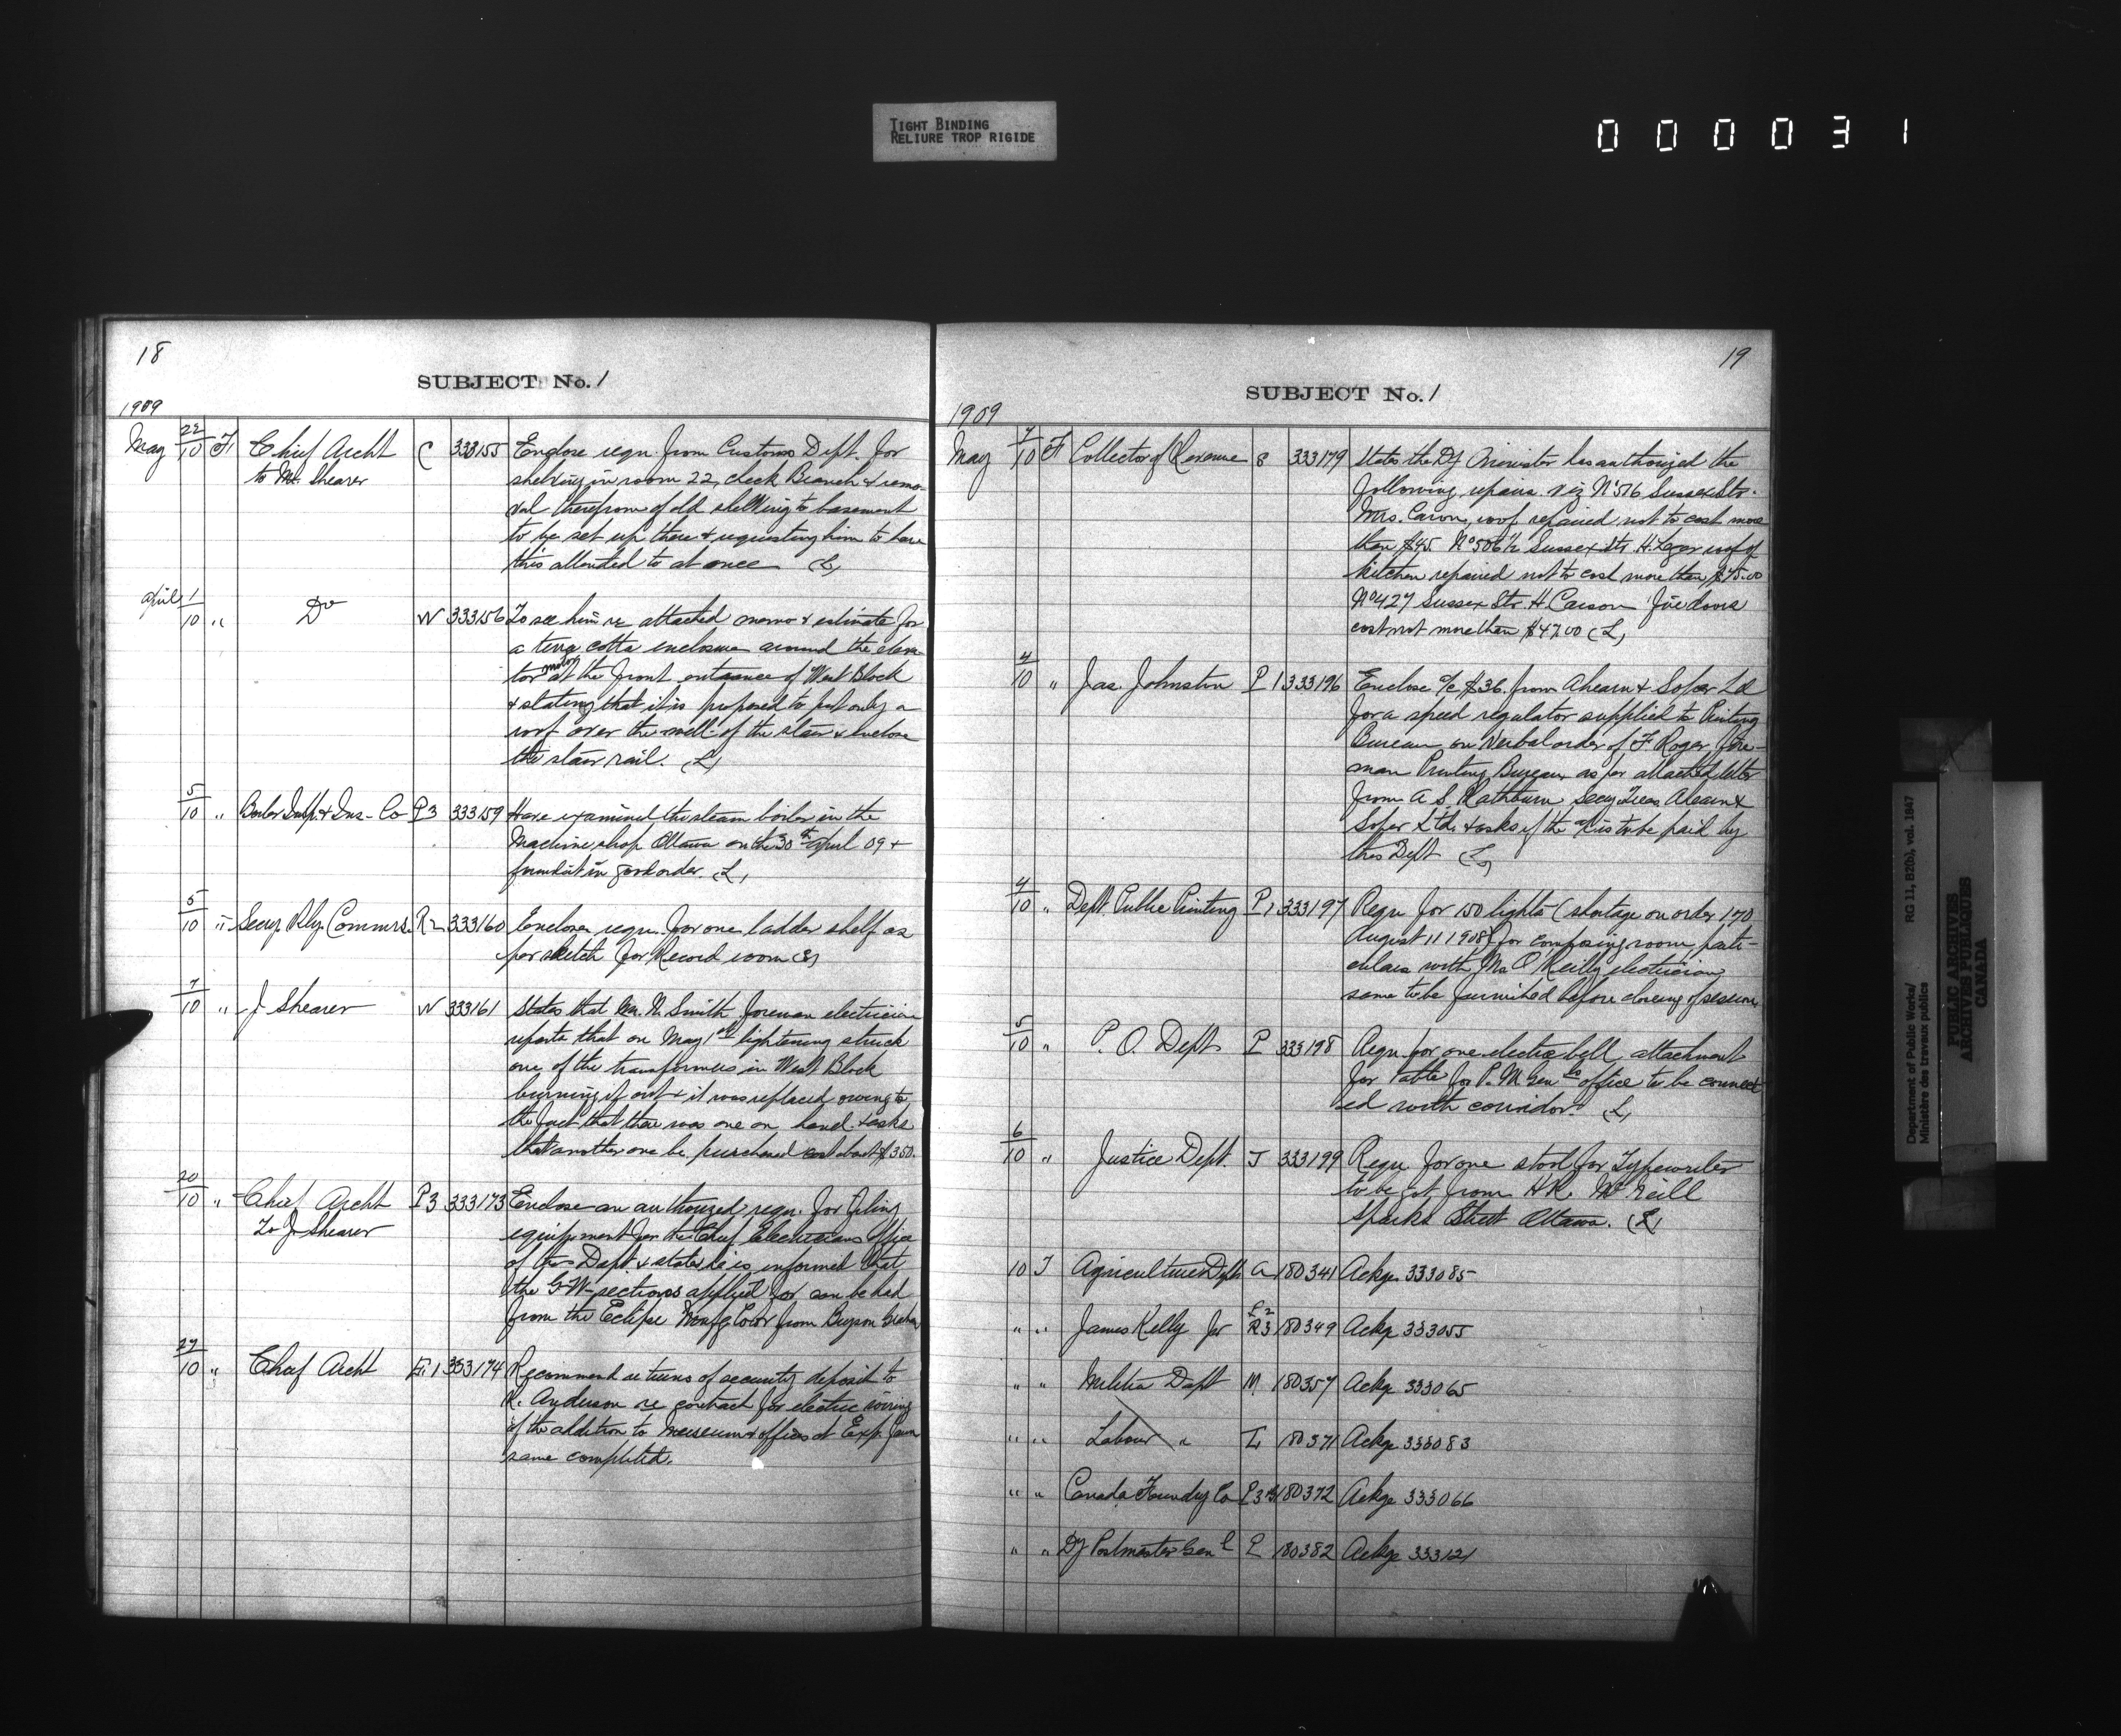 TIGHT BINDING
RELIURE TROP RIGIDE
000031
18
SUBJECT No. 1
1909
May 22/10 F Chief Archt C 333155 Enclose reqn. from Customs Dept. for
to Mr. Shearer shelving in room 22, check Branch & remo-
val therefrom of old shelving to basement
to be set up there & requesting him to have
this attended to at once (L)
April 1/10 " Do W 333156 To see him re attached memo & estimate for
a terra cotta enclosure around the eleva-
tor motor at the front entrance of West Block
& stating that it is proposed to put only a
roof over the well of the stair & enclose
the stair rail. (L)
5/10 " Boiler Insp. & Ins. Co P3 333159 Have examined the steam boiler in the
Machine shop Ottawa on the 30th April 09 &
found it in good order. (L)
5/10 " Secy Rly. Commrs. R2 333160 Enclose reqn. for one ladder shelf as
per sketch for Record room (S)
7/10 " J Shearer W 333161 States that Mr. N. Smith foreman electrician
reports that on May 1st lightening struck
one of the transformers in West Block
burning it out & it was replaced owing to
the fact that there was one on hand. & asks
that another one be purchased cost about $350.
20/10 " Chief Archt P3 333173 Enclose an authorized reqn. for filing
To J. Shearer equipment for the Chief Electricians Office
of the Dept & states he is informed that
the G-W-sections applied for can be had
from the Eclipse Manfg Co or from Bryson Graham
27/10 " Chief Archt E.1 333174 Recommend returns of security deposit to
R. Anderson re contract for electric wiring
of the addition to Museum & offices at Exp. farm
same completed.
19
SUBJECT No. 1
1909
May 7/10 F Collector of Revenue S 333179 States the Dy Minister has authorized the
following repairs viz No 516 Sussex Str.
Mrs. Caron, roof repaired not to cost more
than $45. No 506½ Sussex Str. H. Leger roof of
kitchen repaired not to cost more than $45.00
No 427 Sussex Str. H Carson five doors
cost not more than $47.00 (L)
4/10 " Jas. Johnston P1 333196 Enclose a/c $36. from Ahearn & Soper Ld
for a speed regulator supplied to Printing
Bureau on verbal order of F. Roger, Fore-
man Printing Bureau as per attached letter
from A. S. Rathburn Secy Treas. Ahearn &
Soper Ltd. & asks if the a/c is to be paid by
this Dept (L)
4/10 " Dept Public Printing P1 333197 Reqn for 150 lights (shortage on order 170
August 11 1908) for composing room, parti-
culars with Mr. O'Reilly electrician
same to be furnished before closing of session
5/10 " P. O. Dept P 333198 Reqn for one electric bell attachment
for table for P. M. Genls office to be connect-
ed with corridor (L)
6/10 " Justice Dept. J 333199 Reqn for one stool for Typewriter
to be got from H.R. McNeill
Sparks Street Ottawa. (L)
10 T Agriculture Dept A 180341 Ackge 333085
" " James Kelly Jr R3 180349 Ackge 333055
" " Militia Dept M 180357 Ackge 333065
" " Labour " L 180371 Ackge 333083
" " Canada Foundry Co P3 180372 Ackge 333066
" " Dy Postmaster Genl P 180382 Ackge 333121
Department of Public Works/ RG 11, B2(b), vol. 1847
Ministère des travaux publics
PUBLIC ARCHIVES
ARCHIVES PUBLIQUES
CANADA